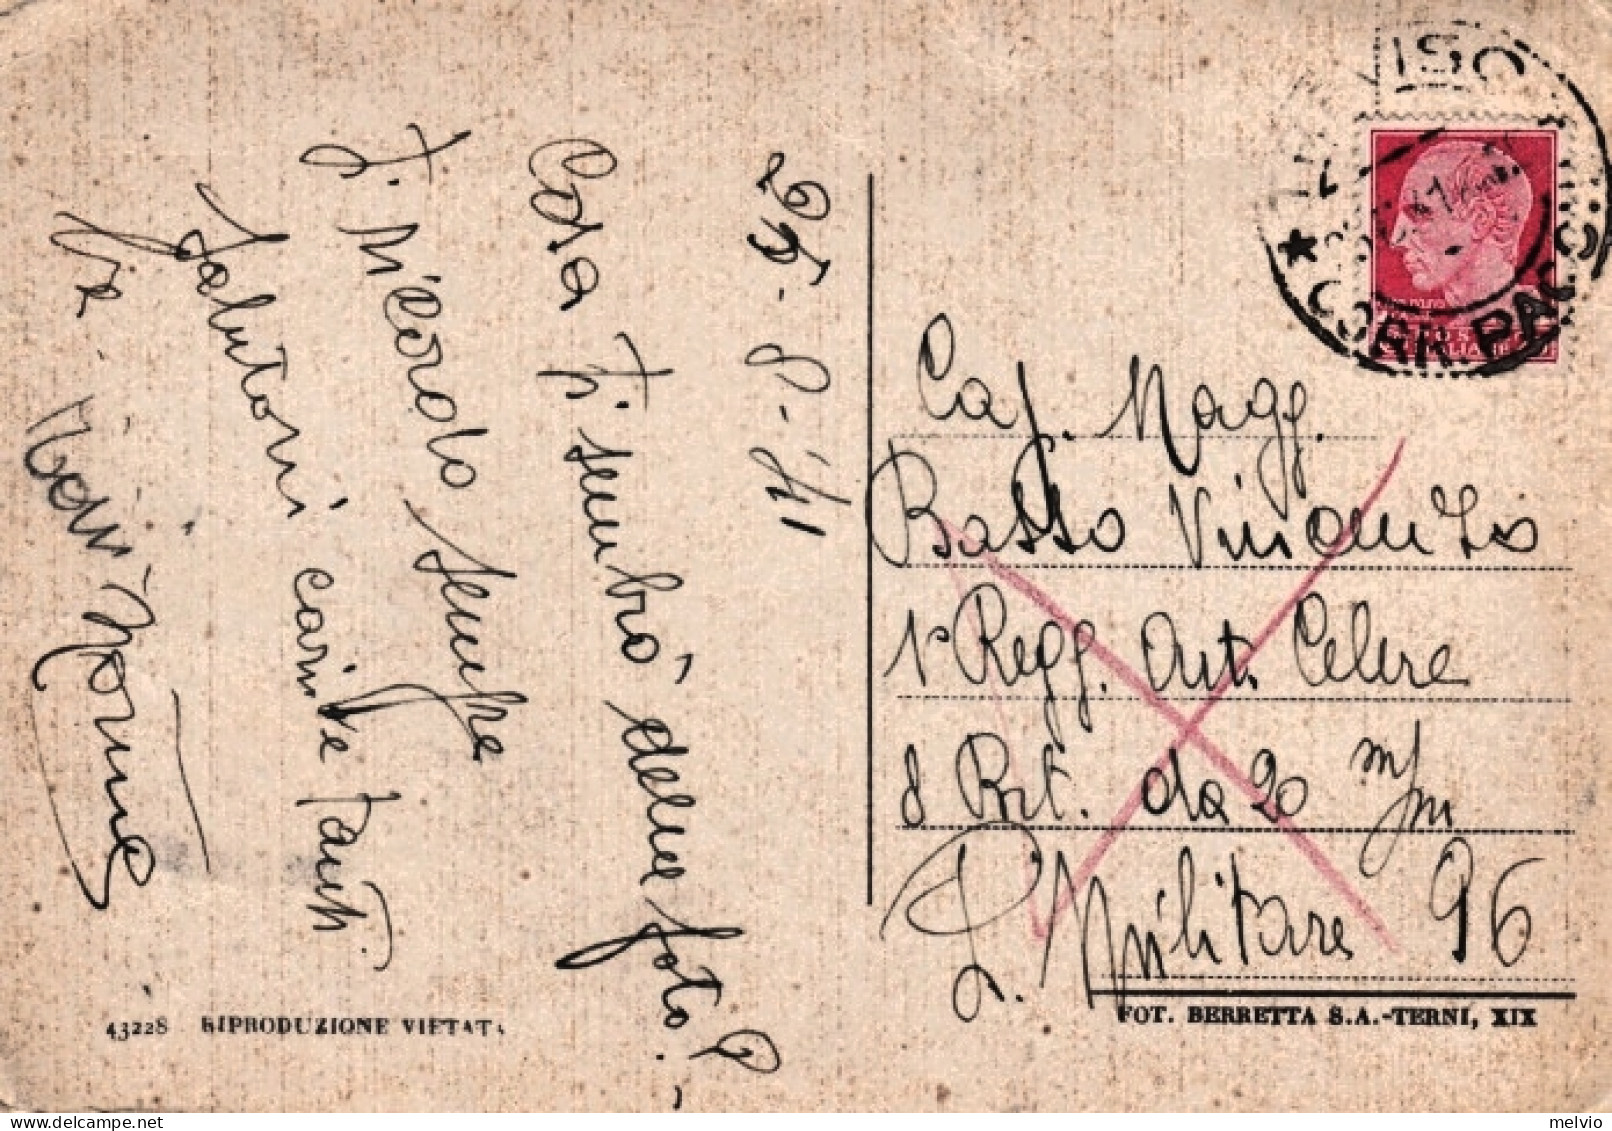 26-8-'41
Cosa ti sembrò delle foto?
Ti ricordo sempre
Salutoni carissimi e tanti
Cap. Magg.
Basso Vincenzo
1° Regg. Art. Celere
8 Bat. da 20 m/m
P. Militare 96
TREVISO
CORR. PACCHI
43228 RIPRODUZIONE VIETATA
FOT. BERRETTA S.A.-TERNI, XIX
delcampe.net
melvio